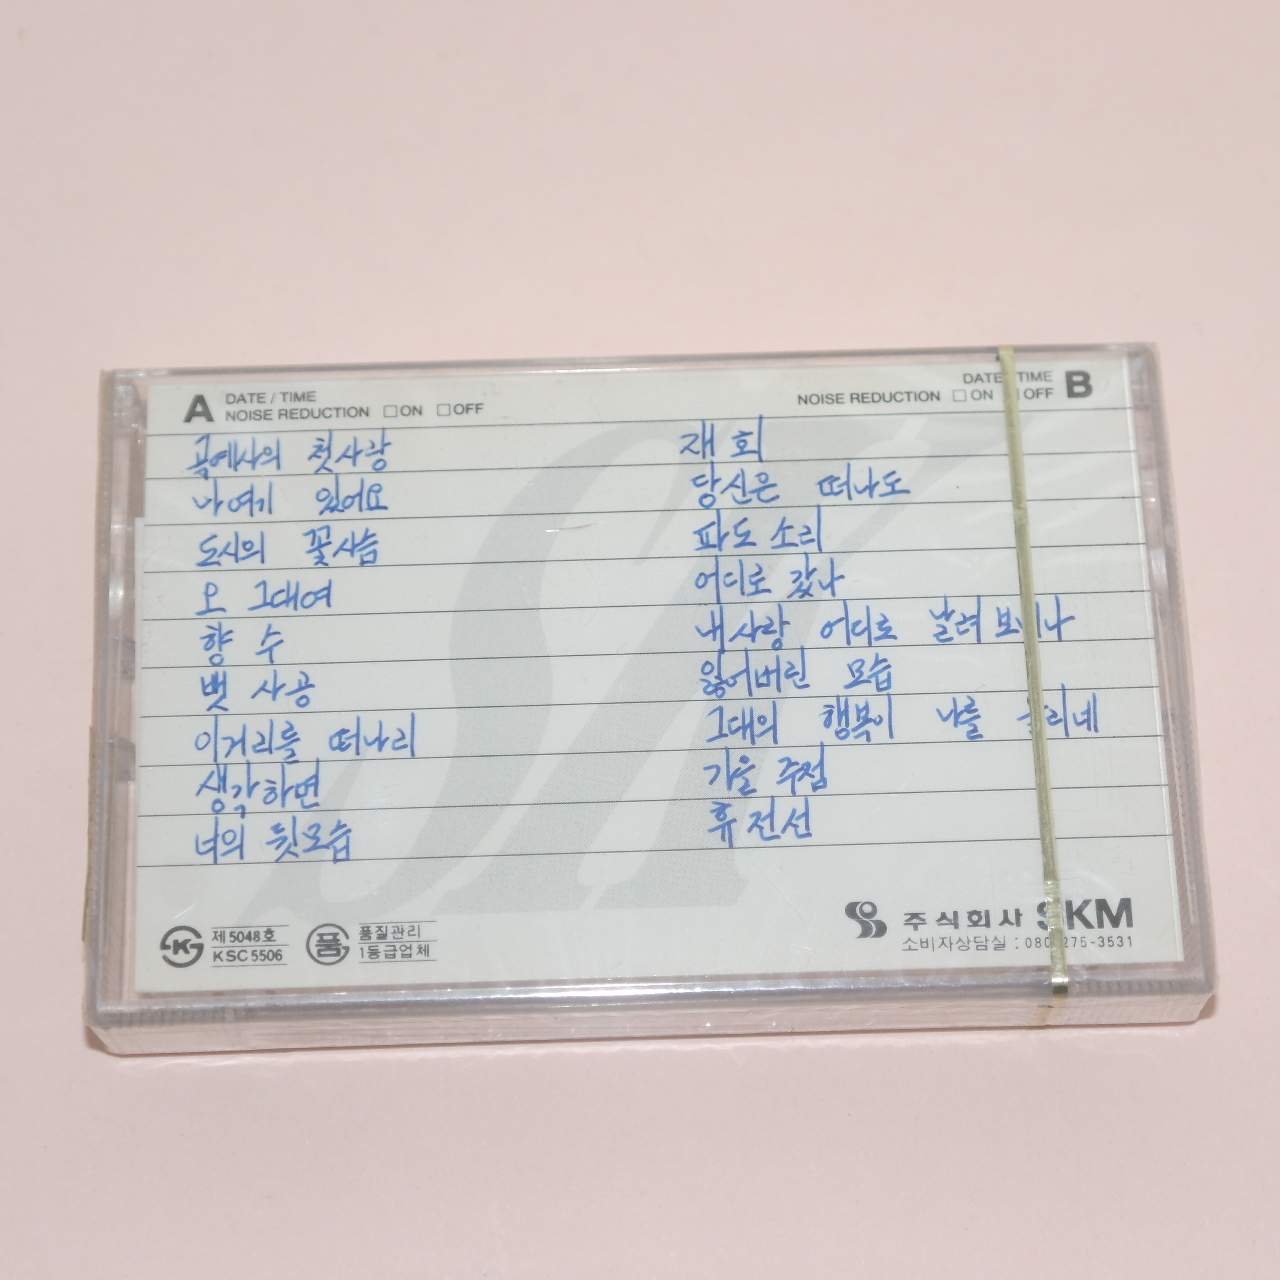 A DATE / TIME
NOISE REDUCTION □ON □OFF
곡예사의 첫사랑
나 여기 있어요
도시의 꽃사슴
오 그대여
향 수
뱃 사공
이거리를 떠나리
생각하면
너의 뒷모습
DATE / TIME B
NOISE REDUCTION □ON □OFF
재 회
당신은 떠나도
파도 소리
어디로 갔나
내사랑 어디로 날려
잃어버린 모습
그대의 행복이 나를
가을 주점
휴전선
제 5048호
KSC 5506
품
품질관리
1등급업체
주식회사 SKM
소비자상담실 : 080-275-3531